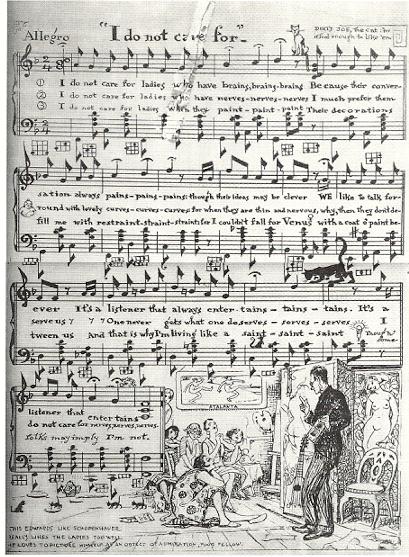 Allegro
"I do not care for"
DIRTY JOE, the Cat
useful enough to like 'em
① I do not care for ladies who have brains, brains-brains Because their conver-
② I do not care for ladies who have nerves-nerves-nerves I much prefer them
③ I do not care for ladies when they paint-paint-paint Their decorations
sation always pains-pains-pains: though their ideas may be clever WE like to talk for-
round with lovely curves-curves-curves: for when they are thin and nervous, why, then they don't de-
fill me with restraint-straint-straint for I couldn't fall for Venus with a coat o' paint be-
ever It's a listener that always enter-tains-tains-tains. It's a
serve us One never gets what one deserves-serves-serves. I
tween us And that is why I'm living like a saint-saint-saint
Though
some
listener that enter tains
do not care for nerves, nerves, nerves.
folks may imply I'm not.
ATALANTA
THIS EDWARDS LIKE SCHOPENHAUER
REALLY LIKES THE LADIES TOO WELL.
HE LOVES TO PICTURE HIMSELF AS AN OBJECT OF ADMIRATION, POOR FELLOW.